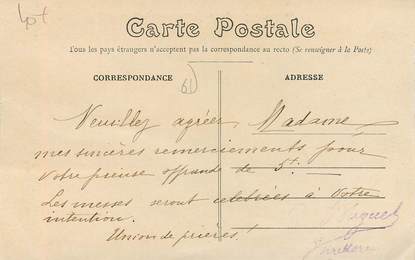 Lot
Carte Postale
Tous les pays étrangers n'acceptent pas la correspondance au recto (Se renseigner à la Poste)
CORRESPONDANCE
ADRESSE
61
Veuillez agréer, Madame,
mes sincères remerciements pour
votre pieuse offrande de 5f.
Les messes seront célébrées à votre
intention.
Union de prières!